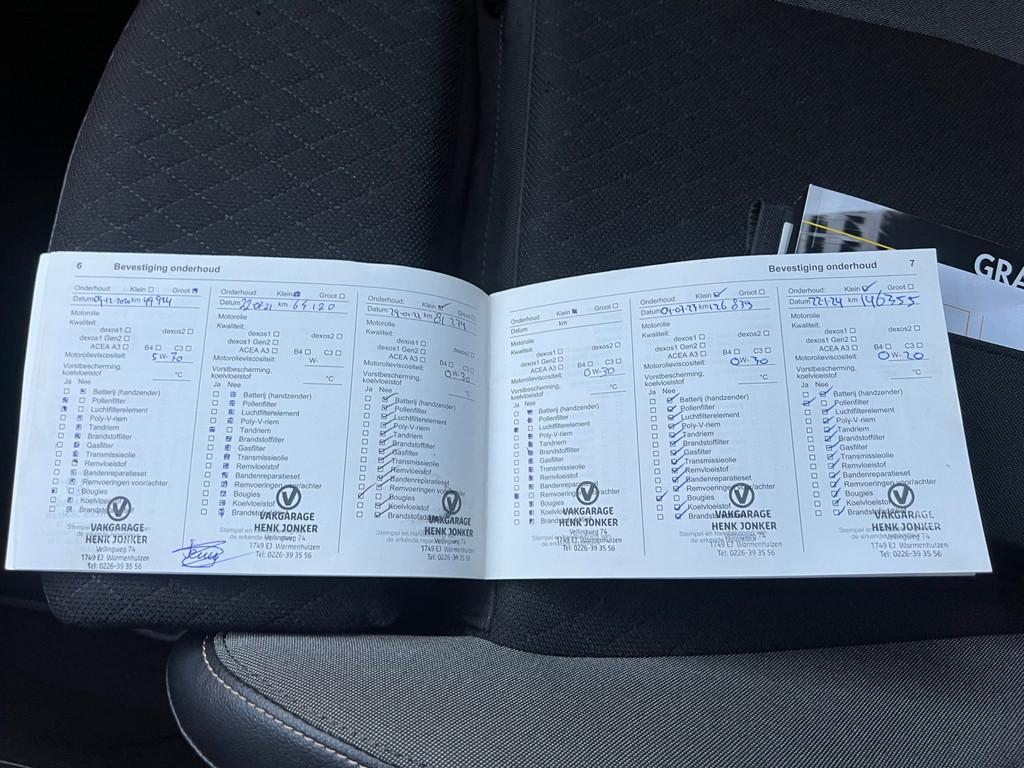 6 Bevestiging onderhoud
Onderhoud: Klein Groot
Datum 09-12-2020 km 49924
Motorolie
Kwaliteit:
dexos1 dexos2
dexos1 Gen2
ACEA A3 B4 C3
Motorolieviscositeit:
5 W-30
Vorstbescherming,
koelvloeistof °C
Ja Nee
Batterij (handzender)
Pollenfilter
Luchtfilterelement
Poly-V-riem
Tandriem
Brandstoffilter
Gasfilter
Transmissieolie
Remvloeistof
Bandenreparatieset
Remvoeringen voor/achter
Bougies
Koelvloeistof
VAKGARAGE
HENK JONKER
Vellingweg 74
1749 EJ Warmenhuizen
Tel: 0226-39 35 56
Onderhoud: Klein Groot
Datum km 64120
Motorolie
Kwaliteit:
dexos1 dexos2
dexos1 Gen2
ACEA A3 B4 C3
Motorolieviscositeit:
W-
Vorstbescherming,
koelvloeistof °C
Ja Nee
Batterij (handzender)
Pollenfilter
Luchtfilterelement
Poly-V-riem
Tandriem
Brandstoffilter
Gasfilter
Transmissieolie
Remvloeistof
Bandenreparatieset
Remvoeringen voor/achter
Bougies
Koelvloeistof
VAKGARAGE
HENK JONKER
Vellingweg 74
1749 EJ Warmenhuizen
Tel: 0226-39 35 56
Onderhoud: Klein Groot
Datum km
Motorolie
Kwaliteit:
dexos1 dexos2
dexos1 Gen2
ACEA A3 B4 C3
Motorolieviscositeit:
0 W-30
Vorstbescherming,
koelvloeistof °C
Ja Nee
Batterij (handzender)
Pollenfilter
Luchtfilterelement
Poly-V-riem
Tandriem
Brandstoffilter
Gasfilter
Transmissieolie
Remvloeistof
Bandenreparatieset
Remvoeringen voor/achter
Bougies
Koelvloeistof
VAKGARAGE
HENK JONKER
Vellingweg 74
1749 EJ Warmenhuizen
Tel: 0226-39 35 56
Bevestiging onderhoud 7
Onderhoud: Klein Groot
Datum km
Motorolie
Kwaliteit:
dexos1 dexos2
dexos1 Gen2
ACEA A3 B4 C3
Motorolieviscositeit:
0 W-30
Vorstbescherming,
koelvloeistof °C
Ja Nee
Batterij (handzender)
Pollenfilter
Luchtfilterelement
Poly-V-riem
Tandriem
Brandstoffilter
Gasfilter
Transmissieolie
Remvloeistof
Bandenreparatieset
Remvoeringen voor/achter
Bougies
Koelvloeistof
VAKGARAGE
HENK JONKER
Vellingweg 74
1749 EJ Warmenhuizen
Tel: 0226-39 35 56
Onderhoud: Klein Groot
Datum km 126879
Motorolie
Kwaliteit:
dexos1 dexos2
dexos1 Gen2
ACEA A3 B4 C3
Motorolieviscositeit:
0 W-30
Vorstbescherming,
koelvloeistof °C
Ja Nee
Batterij (handzender)
Pollenfilter
Luchtfilterelement
Poly-V-riem
Tandriem
Brandstoffilter
Gasfilter
Transmissieolie
Remvloeistof
Bandenreparatieset
Remvoeringen voor/achter
Bougies
Koelvloeistof
VAKGARAGE
HENK JONKER
Vellingweg 74
1749 EJ Warmenhuizen
Tel: 0226-39 35 56
Onderhoud: Klein Groot
Datum km 146355
Motorolie
Kwaliteit:
dexos1 dexos2
dexos1 Gen2
ACEA A3 B4 C3
Motorolieviscositeit:
0 W-20
Vorstbescherming,
koelvloeistof °C
Ja Nee
Batterij (handzender)
Pollenfilter
Luchtfilterelement
Poly-V-riem
Tandriem
Brandstoffilter
Gasfilter
Transmissieolie
Remvloeistof
Bandenreparatieset
Remvoeringen voor/achter
Bougies
Koelvloeistof
VAKGARAGE
HENK JONKER
Vellingweg 74
1749 EJ Warmenhuizen
Tel: 0226-39 35 56
GRA